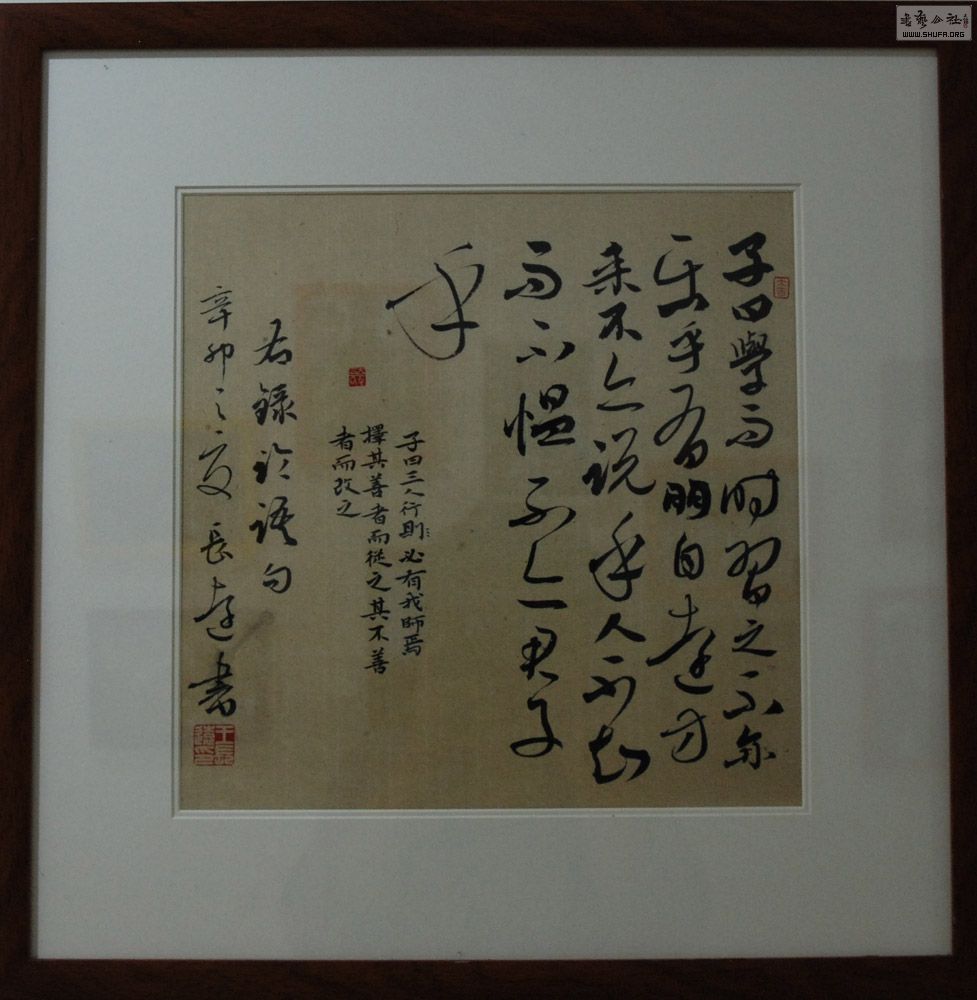 子曰學而时習之不亦
樂乎有朋自遠方
来不亦説乎人不知
而不愠不亦君子
乎
子曰三人行則必有我師焉
擇其善者而從之其不善
者而改之
右録论语句
辛卯之夏長遠書
書藝公社
WWW.SHUFA.ORG